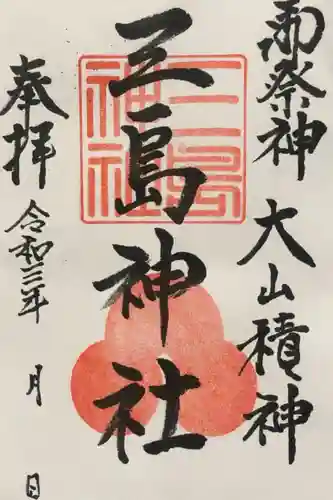 御祭神 大山積神
三島神社
奉拝
令和三年 月 日
三島神社